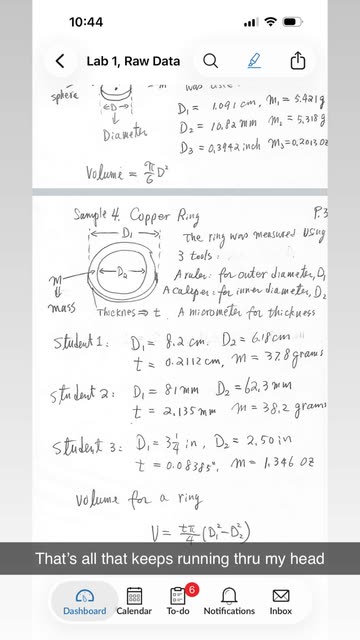 10:44
Lab 1, Raw Data
sphere
was use
D
Diameter
D₁ = 1.091 cm, m₁ = 5.421g
D₂ = 10.82 mm m₂ = 5.318g
D₃ = 0.3942 inch m₃ = 0.2013 oz
Volume = π/6 D²
Sample 4. Copper Ring P.3
D₁
D₂
M
mass
Thicknes ⇒ t
The ring was measured using
3 tools:
A ruler: for outer diameter, D₁
A caliper: for inner diameter, D₂
A micrometer for thickness
Student 1: D₁ = 8.2 cm. D₂ = 6.18 cm
t = 0.2112 cm, m = 37.8 grams
Student 2: D₁ = 81 mm D₂ = 62.3 mm
t = 2.135 mm m = 38.2 grams
Student 3: D₁ = 3 1/4 in, D₂ = 2.50 in
t = 0.08385", m = 1.346 oz
Volume for a ring
V = tπ/4 (D₁² - D₂²)
That's all that keeps running thru my head
6
Dashboard Calendar To-do Notifications Inbox